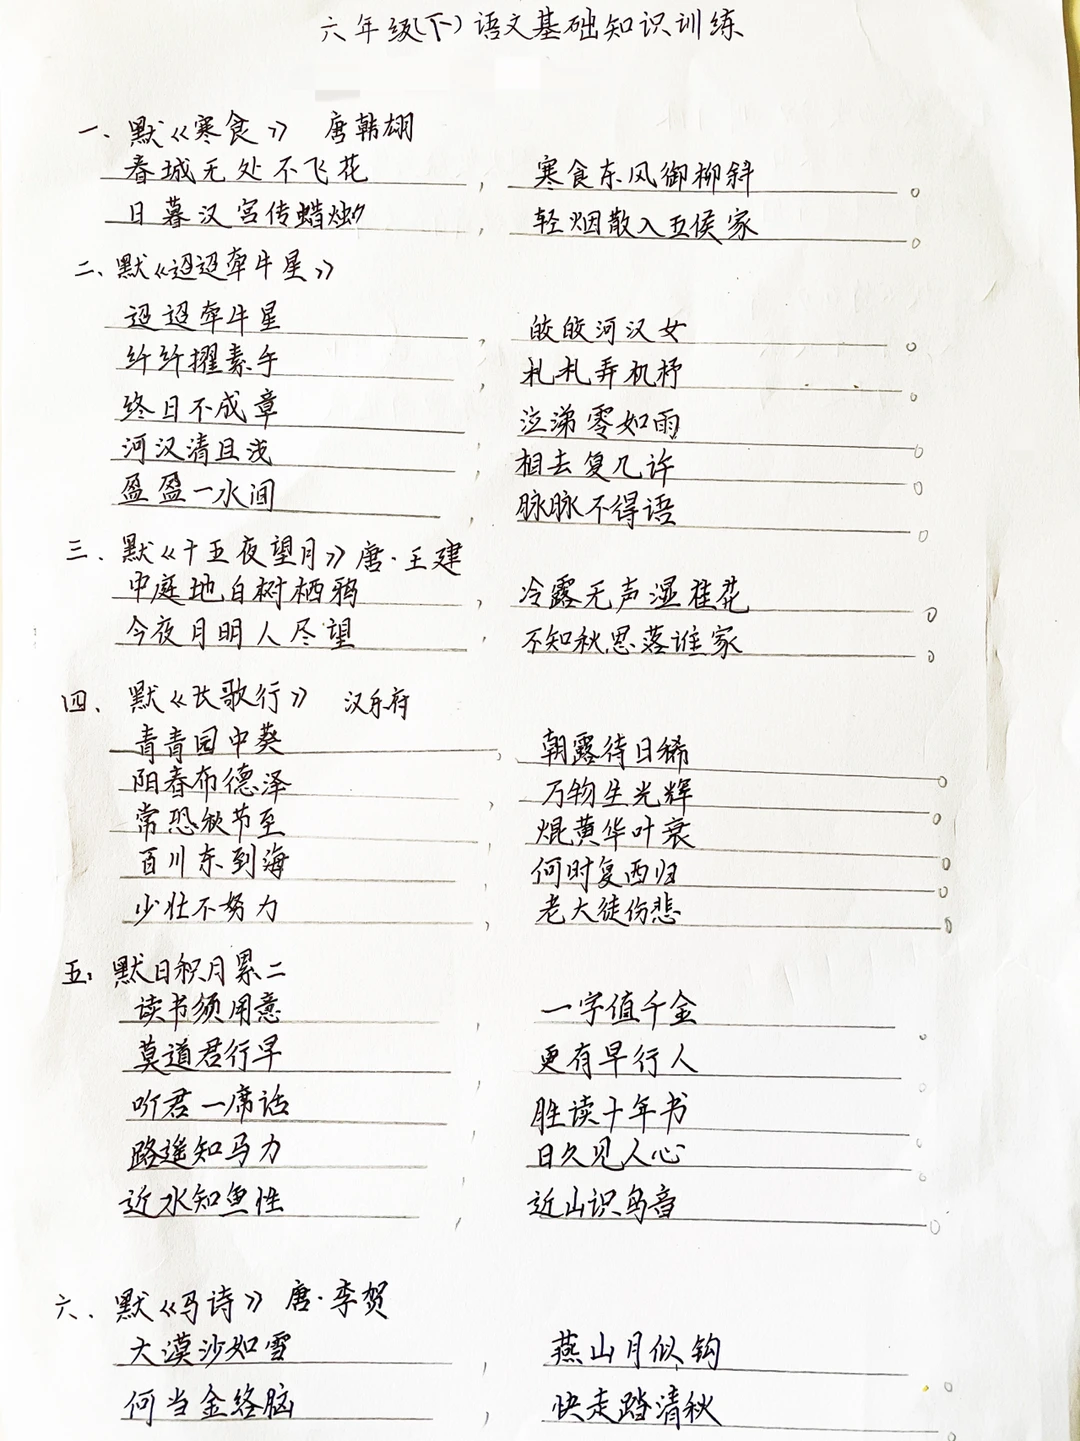 六年级(下)语文基础知识训练
一、默《寒食》 唐韩翃
春城无处不飞花，寒食东风御柳斜。
日暮汉宫传蜡烛，轻烟散入五侯家。
二、默《迢迢牵牛星》
迢迢牵牛星，皎皎河汉女。
纤纤擢素手，札札弄机杼。
终日不成章，泣涕零如雨。
河汉清且浅，相去复几许。
盈盈一水间，脉脉不得语。
三、默《十五夜望月》唐·王建
中庭地白树栖鸦，冷露无声湿桂花。
今夜月明人尽望，不知秋思落谁家。
四、默《长歌行》 汉乐府
青青园中葵，朝露待日稀。
阳春布德泽，万物生光辉。
常恐秋节至，焜黄华叶衰。
百川东到海，何时复西归。
少壮不努力，老大徒伤悲。
五：默日积月累二
读书须用意，一字值千金。
莫道君行早，更有早行人。
听君一席话，胜读十年书。
路遥知马力，日久见人心。
近水知鱼性，近山识鸟音。
六、默《马诗》唐·李贺
大漠沙如雪，燕山月似钩。
何当金络脑，快走踏清秋。